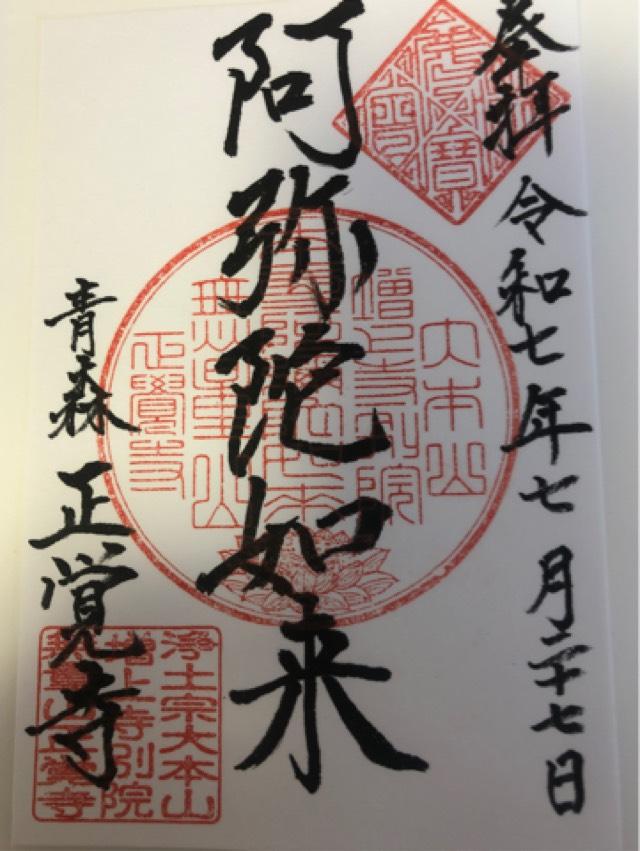 奉拝 令和七年七月二十七日
阿弥陀如来
大本山
増上寺別院
無量山
正覺寺
青森 正覚寺
浄土宗大本山
増上寺別院
無量山正覚寺